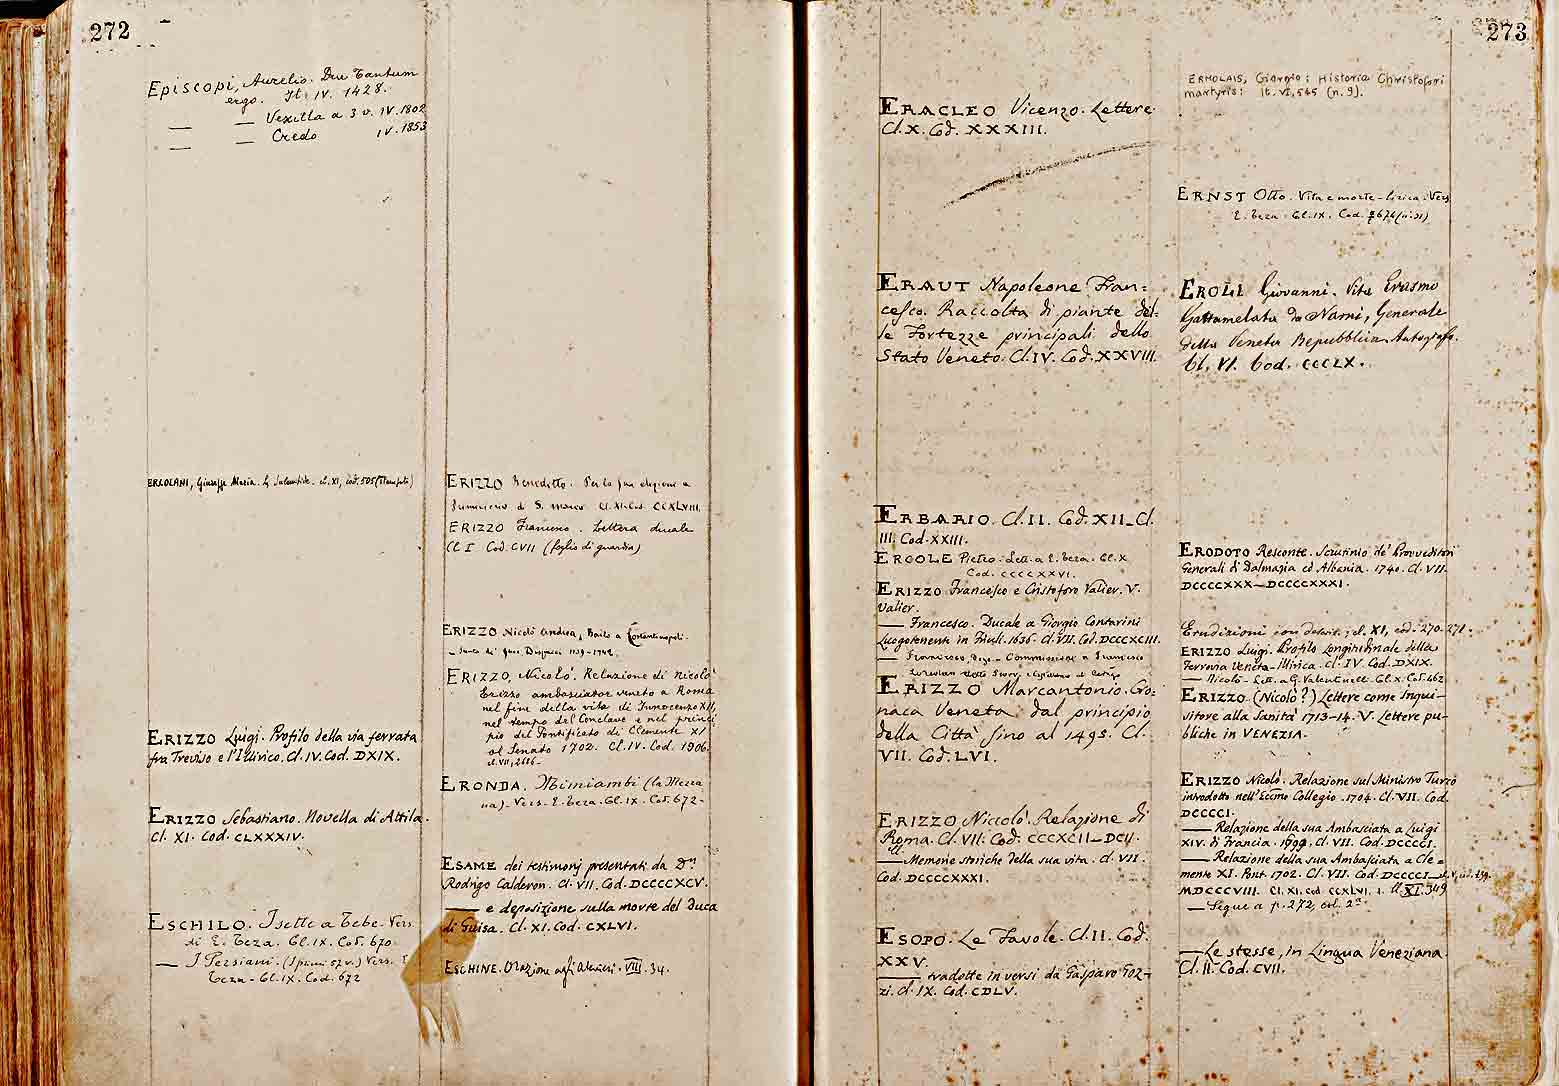 272
Episcopi, Aurelio. Due Tantum
ergo. It. IV. 1428.
— — Vexilla a 3 v. IV. 1802
— — Credo IV. 1853
ERCOLANI, Giuseppe Maria. Cl. XI, cod. 505
ERIZZO Luigi. Profilo della via ferrata
fra Treviso e l'Illirico. Cl. IV. Cod. DXIX.
ERIZZO Sebastiano. Novella di Attila.
Cl. XI. Cod. CLXXXIV.
ESCHILO. I sette a Tebe. Vers.
di E. Teza. Cl. IX. Cod. 670.
— I Persiani. (I primi 57 v.) Vers. E.
Teza. Cl. IX. Cod. 672
ERIZZO Benedetto. Per la sua elezione a
Primicerio di S. Marco Cl. XI. Cod. CCXLVIII.
ERIZZO Francesco. Lettera ducale
Cl I Cod. CVII (foglio di guardia)
ERIZZO Nicolò Andrea, Bailo a Costantinopoli.
ERIZZO, Nicolò. Relazione di Nicolò
Erizzo ambasciator veneto a Roma
nel fine della vita di Innocenzo XII,
nel tempo del Conclave e nel princi
pio del Pontificato di Clemente XI
al Senato 1702. Cl. IV. Cod. 1906.
cl. VII, 2616.
ERONDA. Mimiambi (la Mezza
na). Vers. E. Teza. Cl. IX. Cod. 672.
ESAME dei testimonj presentati da Dn.
Rodrigo Calderon. Cl. VII. Cod. DCCCCXCV.
— e deposizione sulla morte del Duca
di Guisa. Cl. XI. Cod. CXLVI.
ESCHINE. Orazione VIII. 34.
273
ERACLEO Vicenzo. Lettere.
Cl. X. Cod. XXXIII.
ERAUT Napoleone Fran=
cesco. Raccolta di piante del=
le Fortezze principali dello
Stato Veneto. Cl. IV. Cod. XXVIII.
ERBARIO. Cl. II. Cod. XII_Cl.
III. Cod. XXIII.
ERCOLE Pietro. Lett. a E. Teza. Cl. X
Cod. CCCCXXVI.
ERIZZO Francesco e Cristoforo Valier. V.
Valier.
— Francesco. Ducale a Giorgio Contarini
Luogotenente in Friuli. 1636. Cl. VII. Cod. DCCCXCIII.
— Francesco, doge. Commissione a Francesco
ERIZZO Marcantonio. Cro=
naca Veneta dal principio
della Città sino al 1495. Cl.
VII. Cod. LVI.
ERIZZO Niccolò. Relazione di
Roma. Cl. VII. Cod. CCCXCII_DCII.
— Memorie storiche della sua vita. Cl. VII.
Cod. DCCCCXXXI.
ESOPO. Le Favole. Cl. II. Cod.
XXV.
— tradotte in versi da Gasparo Goz-
zi. Cl. IX. Cod. CDLV.
ERMOLAIS, Giorgio: Historia Christofori
martyris: It. VI, 545 (n. 9).
ERNST Otto. Vita e morte - lirica. Vers.
E. Teza. Cl. IX. Cod.
EROLI Giovanni. Vita Erasmo
Gattamelata da Narni, Generale
della Veneta Repubblica. Autografo.
Cl. VI. Cod. CCCLX.
ERODOTO Resconte. Scrutinio de' Provveditori
Generali di Dalmazia ed Albania. 1740. Cl. VII.
DCCCCXXX_DCCCCXXXI.
Erudizioni con cl. XI, cod. 270-271.
ERIZZO Luigi. Profilo Longitudinale della
Ferrovia Veneta-Illirica. Cl. IV. Cod. DXIX.
— Nicolò. Lett. a G. Valentinelli. Cl. X. Cod. 462
ERIZZO (Nicolò?) Lettere come Inqui-
sitore alla Sanità 1713-14. V. Lettere pu-
bliche in VENEZIA.
ERIZZO Nicolò. Relazione sul Ministro Turco
introdotto nell'Eccmo Collegio. 1704. Cl. VII. Cod.
DCCCCI.
— Relazione della sua Ambasciata a Luigi
XIV. di Francia. 1699. Cl. VII. Cod. DCCCCI.
— Relazione della sua Ambasciata a Cle=
mente XI. Pont. 1702. Cl. VII. Cod. DCCCCI_
MDCCCVIII. Cl. XI. cod. CCXLVI. 1. It. XI. 349
— Segue a p. 272, col. 2a
— Le stesse, in Lingua Veneziana.
Cl. II. Cod. CVII.